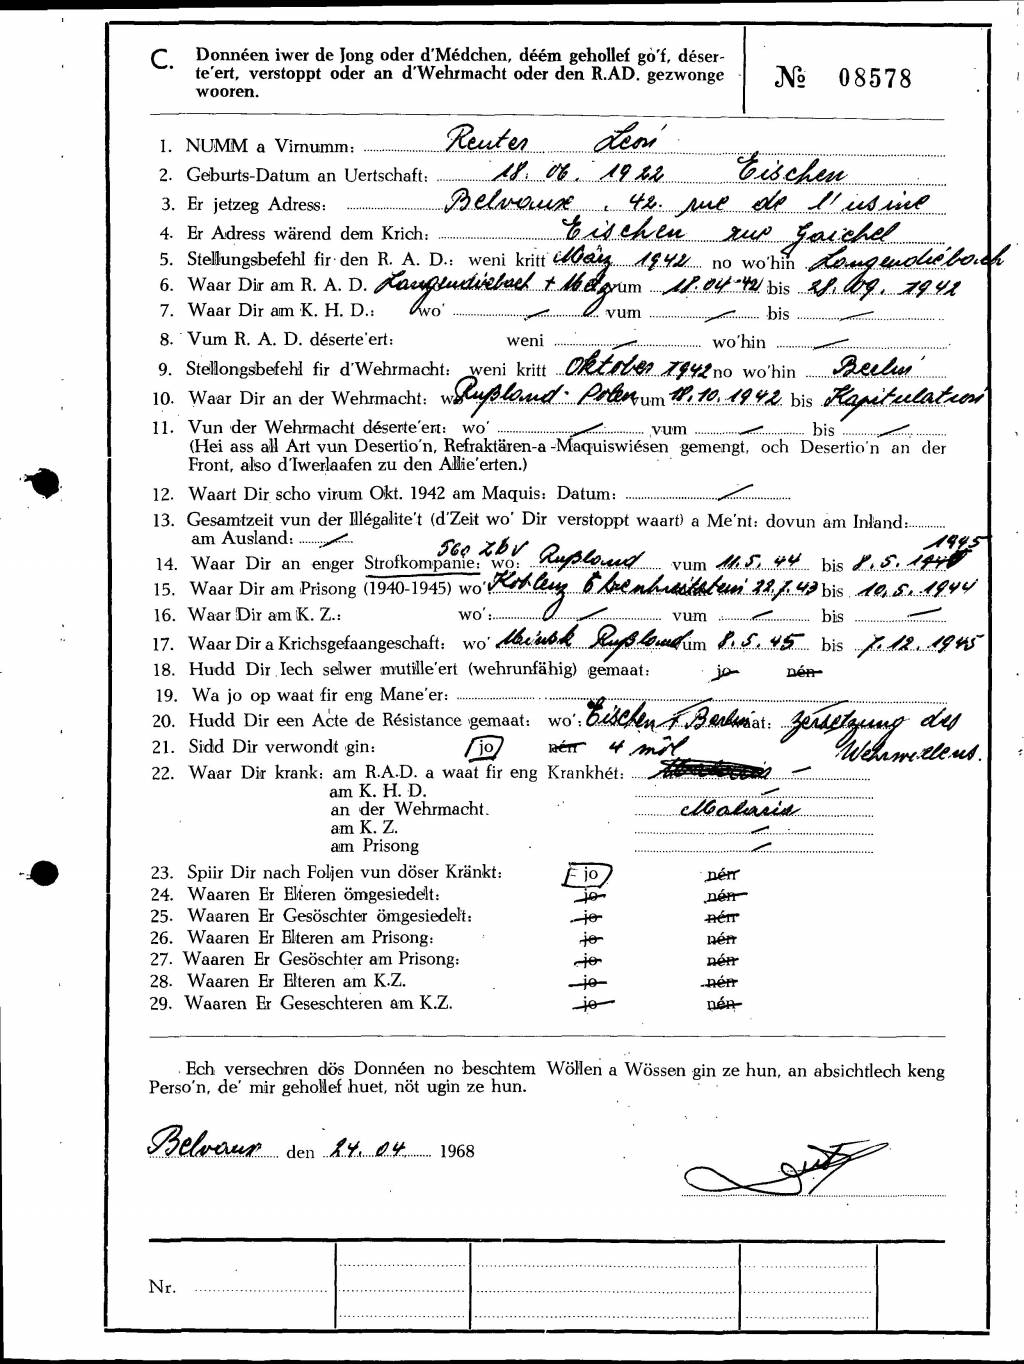 C. Donnéen iwer de Jong oder d'Médchen, déém gehollef go'f, déser-
te'ert, verstoppt oder an d'Wehrmacht oder den R.AD. gezwonge
wooren.
№ 08578
1. NUMM a Virnumm: Reuter Leon
2. Geburts-Datum an Uertschaft: 18. 06. 1922 Eischen
3. Er jetzeg Adress: Belvaux, 42. rue de l'usine
4. Er Adress wärend dem Krich: Eischen rue Gaichel
5. Stellungsbefehl fir den R. A. D.: weni kritt März 1942 no wo'hin Langendiebach
6. Waar Dir am R. A. D. Langendiebach + Metz vum 18.04.42 bis 28.09.1942
7. Waar Dir am K. H. D.: wo' — vum — bis —
8. Vum R. A. D. déserte'ert: weni — wo'hin —
9. Stellongsbefehl fir d'Wehrmacht: weni kritt Oktober 1942 no wo'hin Berlin
10. Waar Dir an der Wehrmacht: wo' Rußland - Polen vum 18.10.1942 bis Kapitulation
11. Vun der Wehrmacht déserte'ert: wo' — vum — bis —
(Hei ass all Art vun Desertio'n, Refraktären-a-Maquiswiésen gemengt, och Desertio'n an der
Front, also d'Iwerlaafen zu den Allie'erten.)
12. Waart Dir scho virum Okt. 1942 am Maquis: Datum: —
13. Gesamtzeit vun der Illégalite't (d'Zeit wo' Dir verstoppt waart) a Me'nt: dovun am Inland:
am Ausland: —
14. Waar Dir an enger Strofkompanie: wo: 560 ZbV Rußland vum 11.5.44 bis 8.5.1945
15. Waar Dir am Prison (1940-1945) wo' Koblenz Ehrenbreitstein 22.7.43 bis 10.5.1944
16. Waar Dir am K. Z.: wo': — vum — bis —
17. Waar Dir a Krichsgefaangeschaft: wo' Minsk Rußland vum 8.5.45 bis 7.12.1945
18. Hudd Dir Iech selwer mutille'ert (wehrunfähig) gemaat: jo nén
19. Wa jo op waat fir eng Mane'er: —
20. Hudd Dir een Acte de Résistance gemaat: wo': Eischen + Berlin waat: Zersetzung des
Wehrwillens.
21. Sidd Dir verwondt gin: jo nén 4 mól
22. Waar Dir krank: am R.A.D. a waat fir eng Krankhét: —
am K. H. D. —
an der Wehrmacht. Malaria
am K. Z. —
am Prisong —
23. Spiir Dir nach Foljen vun döser Kränkt: jo nén
24. Waaren Er Elteren ömgesiedelt: jo nén
25. Waaren Er Gesöschter ömgesiedelt: jo nén
26. Waaren Er Elteren am Prisong: jo nén
27. Waaren Er Gesöschter am Prisong: jo nén
28. Waaren Er Elteren am K.Z. jo nén
29. Waaren Er Geseschteren am K.Z. jo nén
Ech versechren dös Donnéen no beschtem Wöllen a Wössen gin ze hun, an absichtlech keng
Perso'n, de' mir gehollef huet, nöt ugin ze hun.
Belvaux den 24. 04. 1968
Nr.